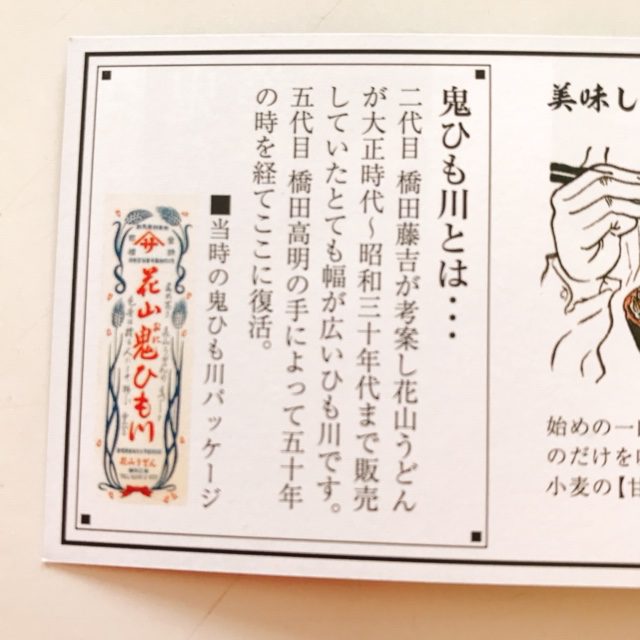 鬼ひも川とは・・・
二代目 橋田藤吉が考案し花山うどん
が大正時代～昭和三十年代まで販売
していたとても幅が広いひも川です。
五代目 橋田高明の手によって五十年
の時を経てここに復活。
■当時の鬼ひも川パッケージ
花山鬼ひも川
おに
花山うどん
美味し
始めの一
のだけを
小麦の【甘